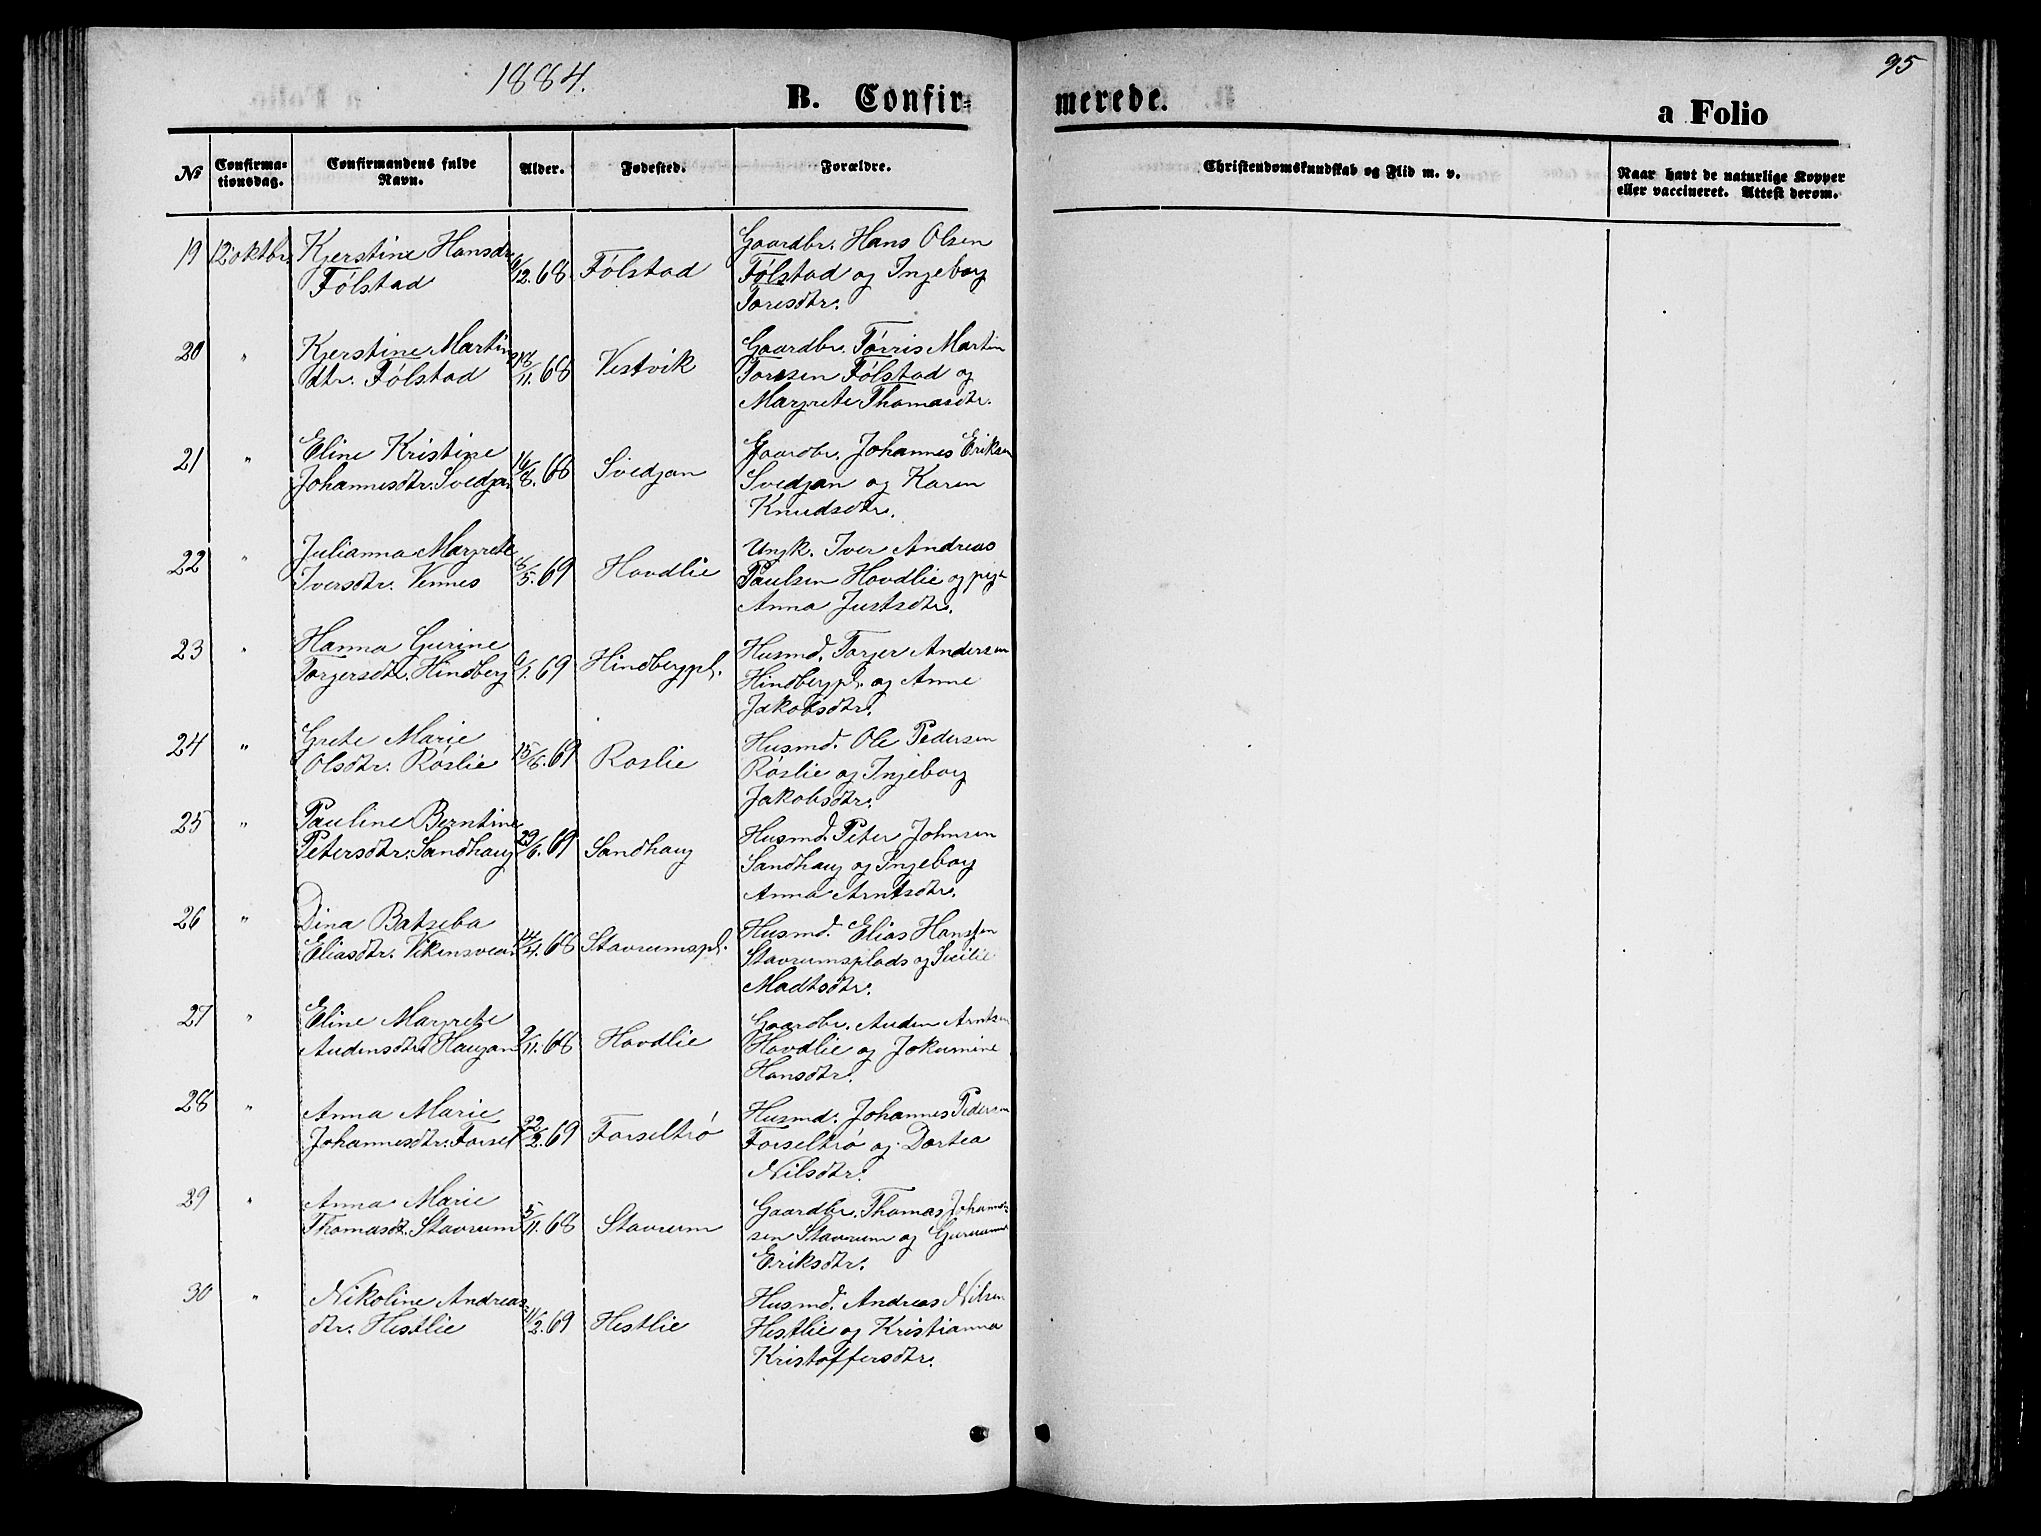 1884.
95
B. Confir=
merede.
a Folio
No
Confirma-
tionsdag.
Confirmandens fulde
Navn.
Alder.
Fødested.
Forældre.
Christendomskundskab og Flid m. v.
Naar havt de naturlige Kopper
eller vaccineret. Attest derom.
19 12 oktbr. Kjerstine Hansdtr
Følstad
/12.68. Følstad
Gaardbr. Hans Olsen
Følstad og Ingeborg
Toresdtr.
20 " Kjerstine Martins
dtr. Følstad
/11.68 Vestvik
Gaardbr. Tørris Martin
Toresen Følstad og
Margrete Thomasdtr.
21 " Eline Kristine
Johannesdtr. Svedjan
16/8.68 Svedjan
Gaardbr. Johannes Eriksen
Svedjan og Karen
Knudsdtr.
22 " Julianna Margrete
Iversdtr. Vennes
/5.69 Hovdlie
Ungk. Iver Andreas
Paulsen Hovdlie og pige
Anna Justsdtr.
23 " Hanna Gurine
Torgersdtr. Hindberg
/1.69 Hindbergpl.
Husmd. Torger Andersen
Hindbergpl. og Anne
Jakobsdtr.
24 " Grete Marie
Olsdtr. Røslie
15/8.69 Roslie
Husmd. Ole Pedersen
Røslie og Ingeborg
Jakobsdtr.
25 " Pauline Berntine
Petersdtr. Sandhaug
29/6.69 Sandhaug
Husmd. Peter Johnsen
Sandhaug og Ingeborg
Anna Arntsdtr.
26 " Dina Batseba
Eliasdtr. Vikensvean
/4.68 Stavrumspl.
Husmd. Elias Hansen
Stavrumsplads og Sicilie
Madtsdtr.
27 " Eline Margrete
Audensdtr. Haugan
9/11.68 Hovdlie
Gaardbr. Auden Arntsen
Hovdlie og Jokumine
Hansdtr.
28 " Anna Marie
Johannesdtr. Forsel
22/2.69 Forseltrø
Husmd. Johannes Pedersen
Forseltrø og Dortea
Nilsdtr.
29 " Anna Marie
Thomasdt. Stavrum
5/11.68 Stavrum
Gaardbr. Thomas Johannes-
sen Stavrum og
Eriksdtr.
30 " Nikoline Andreas-
dtr. Hestlie
11/2.69 Hestlie
Husmd. Andreas Nilsen
Hestlie og Kristianna
Kristoffersdtr.